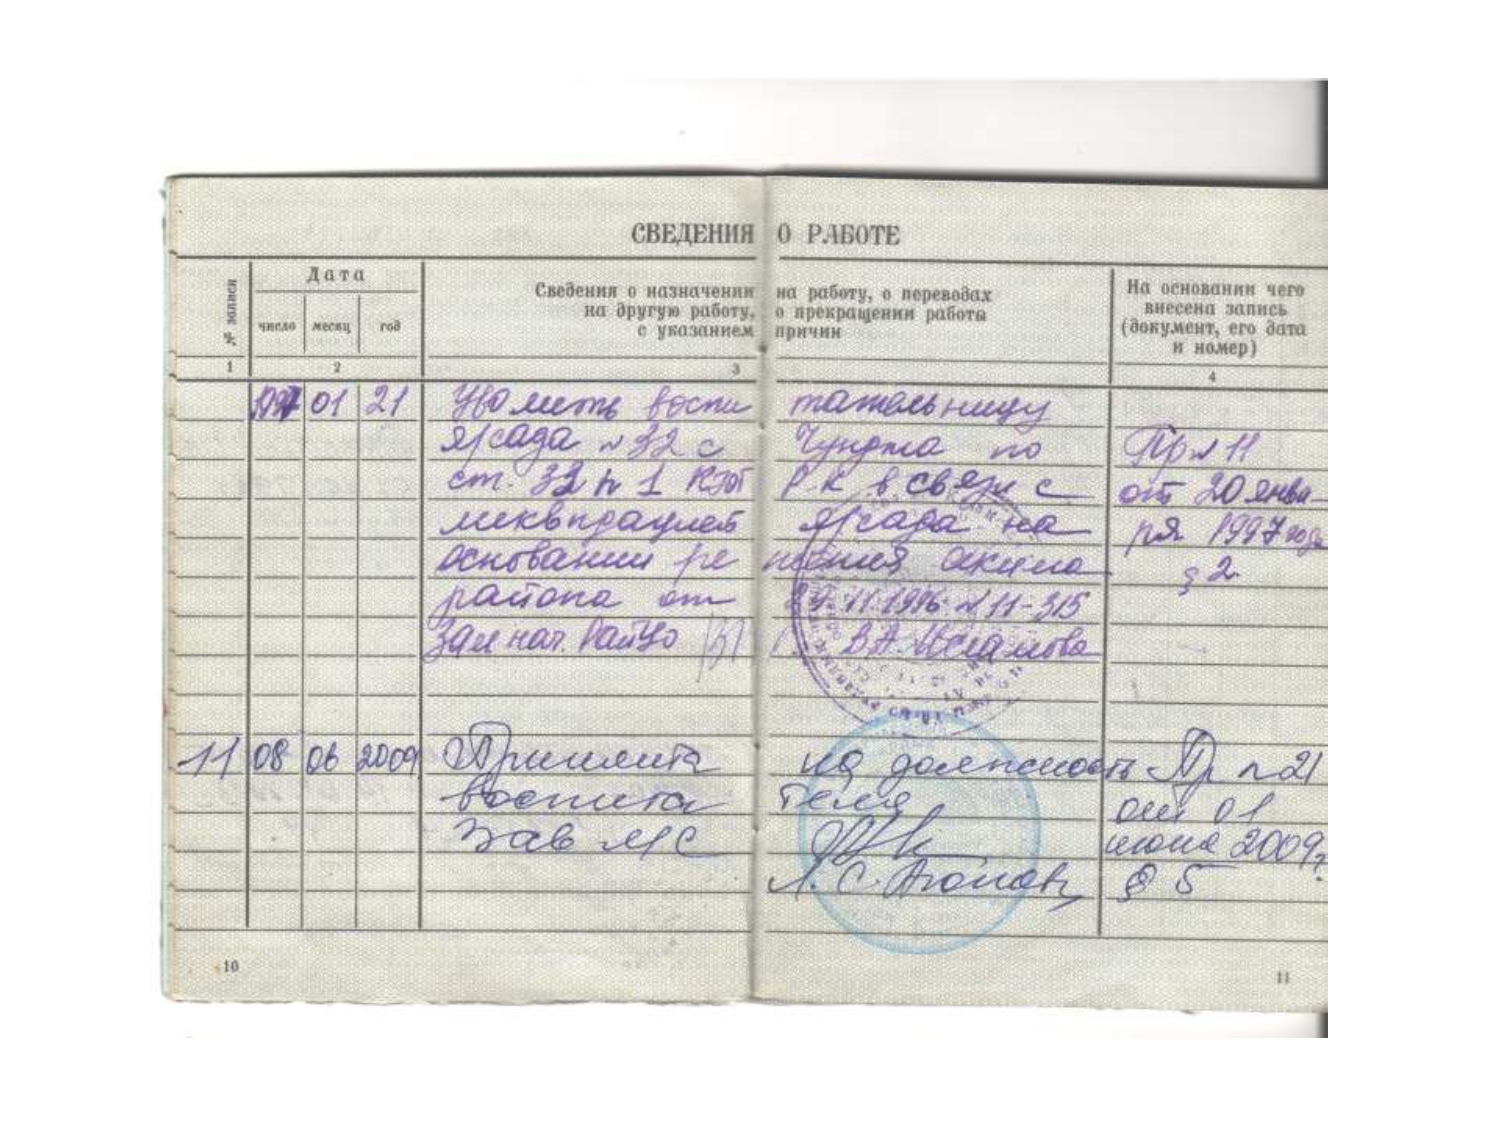 СВЕДЕНИЯ О РАБОТЕ
№ записи
Дата
число месяц год
Сведения о назначении на работу, о переводах
на другую работу, о прекращении работа
с указанием причин
На основании чего
внесена запись
(документ, его дата
и номер)
1 2 3 4
1997 01 21 Уволить воспи тательницу
я/сада №32 с Чунджа по Пр №11
ст. 33 п 1 КЗОТ Р К в связи с от 20 янва-
ликвидацией я/сада на ря 1997 года
основании ре шения акима § 2
района от 29.11.1996 №11-315
Зам нач. РайУО В.А.
11 08 06 2009 Принята на должность Пр №21
воспита теля от 01
Зав М/С июня 2009г.
Л. С. § 5
10 11